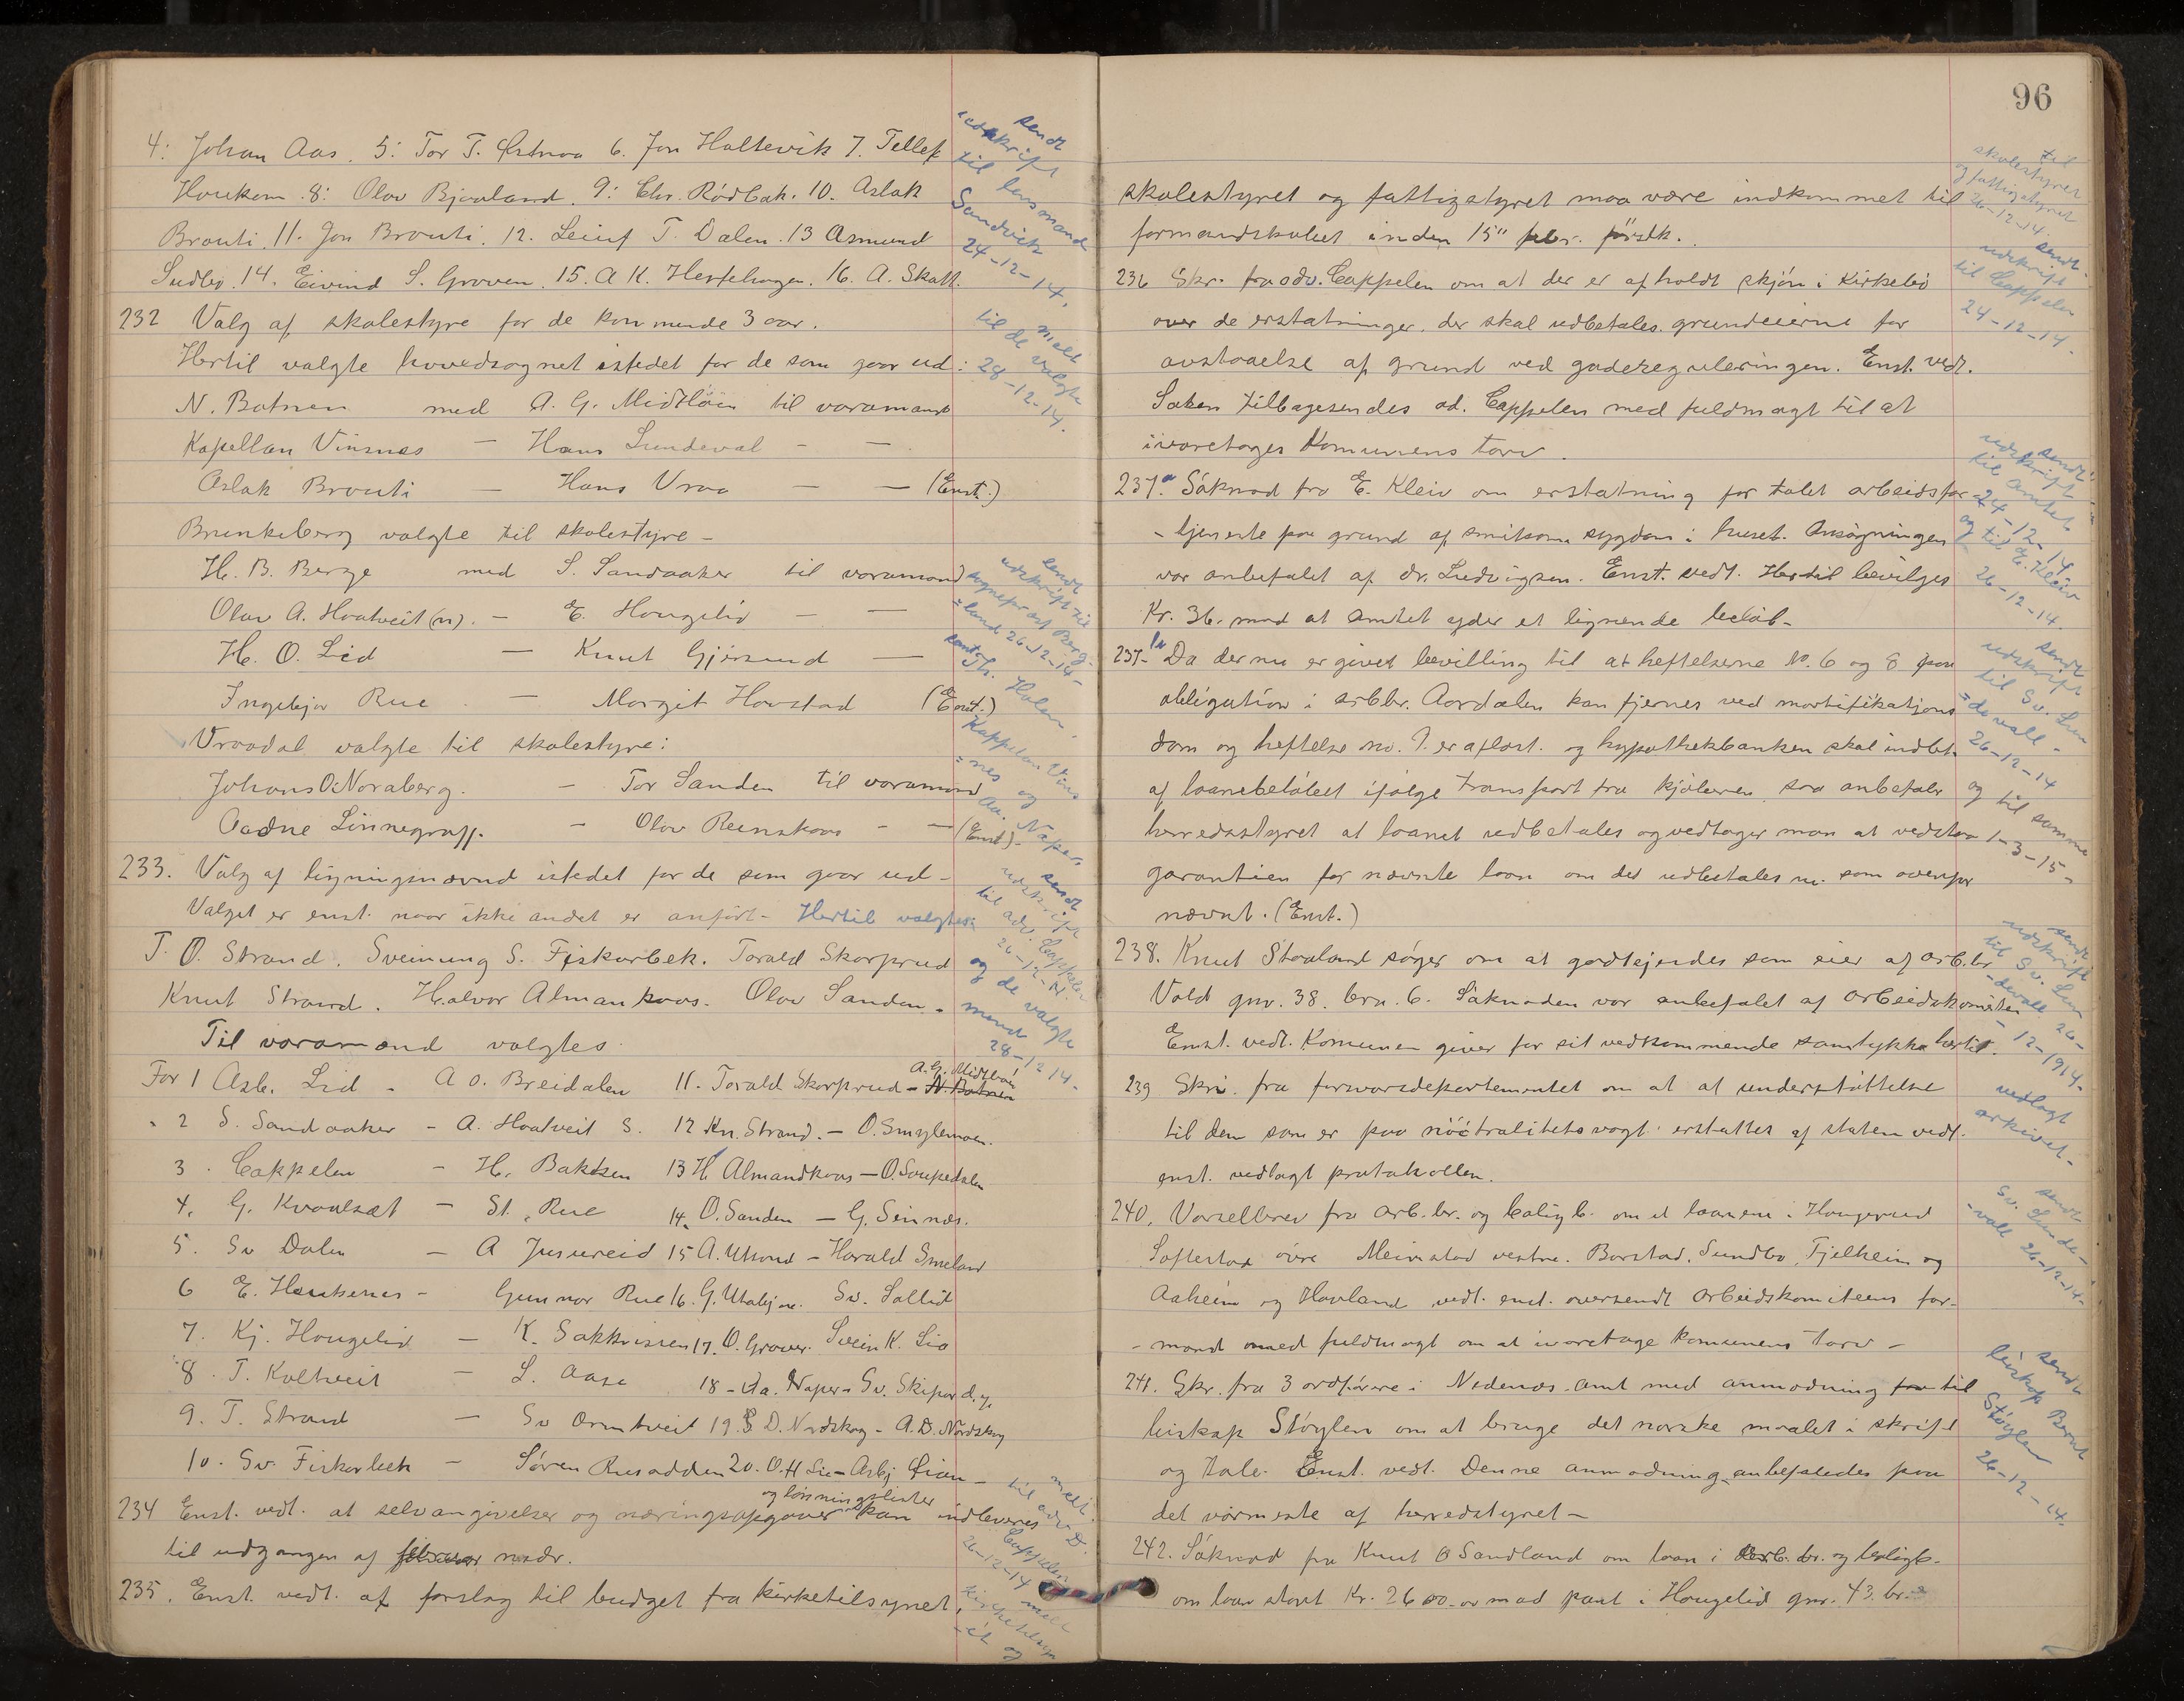 4: Johan Aas. 5: Tor T. 6. Jon Haltevik 7. Tellef
Haukom. 8: Olav Bjaaland. 9: Chr. Rødbak. 10. Aslak
Brauti. 11. Jon Brauti. 12. Leiuf T. Dalen. 13 Asmund
Sudbø. 14. Eivind S. Groven. 15. A K. 16. A. Skatt.
sendt
udskrift
til lensmand
Sandvik
24-12-14.
232 Valg af skolestyre for de kommende 3 aar.
Hertil valgte hovedsognet istedet for de som gaar ud:
N. Botnen med A. G. Midtbøin til varamand
Kapellan Vinsnes — Hans Lundeval — —
Aslak Brauti — Hans Vraa — — (Enst.)
meld
til de valgte
28-12-14.
Brunkeberg valgte til skolestyre —
H. B. Berge med S. Sandaaker til varamand
Olav A. Hoatveit (n). — E. Haugelid — —
H. O. Lid — Knut Gjersund —
Ingebjør Rue — Margit Haustad (Enst.)
sendt
udskrift til
sogneprest Berg-
=land 26-12-14-
Kappelan Vins
=nes og
Aa. Naper.
Vraadal valgte til skolestyre:
Johans O. Noraberg. — Tor Sanden til varamand
Aadne Linnegrapp. — Olav — — (Enst)-
233. Valg af ligningsnævnd istedet for de som gaar ud-
Valget er enst. naar ikke andet er anført- Hertil valgtes:
T. O. Strand. Sveinung S. Fiskarbek. Torald Skarprud
Knut Strand. Halvor Almankaas. Olav Sanden.
sendt
udskrift
til adv. Cappelen
26-12-14.
og de valgte
mend
28-12 14-
Til varamænd valgtes.
For 1 Asb. Lid - A O. Breidalen 11. Torald Skarprud - A. G. Midtbøin N. Botnen
" 2 S. Sandaaker - A. Hoatveit S. 12 Kn. Strand. - O. Smylemoen.
3. Cappelen - H. Bakken 13 H. Almandkaas - O.
4. G. Kvaalsæt - St. Rue 14. O. Sanden - G. Seinnæs.
5. Sv Dalen - A 15 A. - Harald Smeland
6 E. Haukenes - Gunnar Rue 16. G. Utabjaa. Sv. Sollid
7. Kj. Haugelid - K. 17. O. Groven. Svein K. Lia
8. T. Koltveit - L. Aase 18 - Aa. Naper - Sv. Skipar
9. T. Strand - Sv Ormtveit 19. D. Nordskog - A. D. Nordskog
10. Sv. Fiskarbek - Søren Rusodden 20. O. H Lie - Asbj
234 Enst. vedt. at selvangivelser og næringsopgaver og lønningslister kan indleveres
til udgangen af februar næstr.
meld.
til adv D.
Cappelen
26-12-14
235. Enst. vedt. af forslag til budget fra kirketilsynet,
meld
kirketilsyn
-et og
96
skolestyret og fattigstyret maa være indkommet til
formandskabet inden 15" febr. førstk.
til
skolestyret
og fattigstyret
26-12-14.
236 Skr. fra adv. Cappelen om at der er afholdt skjøn i Kirkebø
over de erstatninger, der skal udbetales grundeierne for
avstaaelse af grund ved gadereguleringen. Enst. vedt.
Saken tilbagesendes ad. Cappelen med fuldmagt til at
ivaretages Komunens tarv.
sendt
udskrift
til Cappelen
24-12-14.
237.a Søknad fra E. Kleiv om erstatning for tabt arbeidsfor-
-tjeneste paa grund af smitsom sygdom i huset. Ansøgningen
var anbefalet af dr. Ludvigsen. Enst. vedt. Hertil bevilges
Kr. 36. mod at Amtet yder et lignende beløb-
sendt
udskrift
til Amtet
24-12-14
og til E. Kleiv
26-12-14.
237-b Da der nu er givet bevilling til at heftelserne No. 6 og 8 paa
obligation i arbbr. Aardalen kan fjernes ved mortifikations
dom og heftelse no. 9. er aflæst. og hypothekbanken skal indbt.
af laanebeløbet ifølge transport fra kjøberen, saa anbefaler
herredsstyret at laanet udbetales og vedtager man at vedstaa
garantien for nævnte laan om det udbetales nu som ovenfor
nævnt. (Enst.)
sendt
udskrift
til Sv. Lun
=devall-
26-12-14
og til samme
1-3-15-
238. Knut Staaland søger om at godkjendes som eier af arb.br
Vold gnr. 38. brn. 6. Søknaden var anbefalet af arbeidskomiteen
Enst. vedt. Komunen giver for sit vedkommende samtykke hertil.
sendt
udskrift
til Sv. Lun
-devall 26-
-12-1914-
239 Skri. fra forsvarsdepartementet om at at understøttelse
til dem som er paa nöitralitetsvagt erstattes af staten vedt.
enst. vedlagt protokollen.
vedlagt
arkivet-
240. Varselbrev fra arb.br. og boligb. om et laanene i Haugerud
Loftestad övre Meinstad vestre. Borstad, Sundbø, Fjelheim og
Aaheim og Havland vedt. enst. oversendt Arbeidskomiteens for-
-mand med fuldmagt om at ivaretage komunens Tarv -
sendt
Sv. Lunde-
-vall 26-12-14-
241. Skr. fra 3 ordførere i Nedenæs amt med anmodning fra til
biskop Støylen om at bruge det norske maalet i skrift
og tale. Enst. vedt. Denne anmodning anbefaledes paa
det varmeste af herredstyret -
sendt
biskop Bernt
Støylen
26-12-14-
242. Søknad fra Knut O Sandland om laan i arb. br. og boligb-
om laan stort Kr. 2600- mod pant i Haugelid gnr. 43. br.